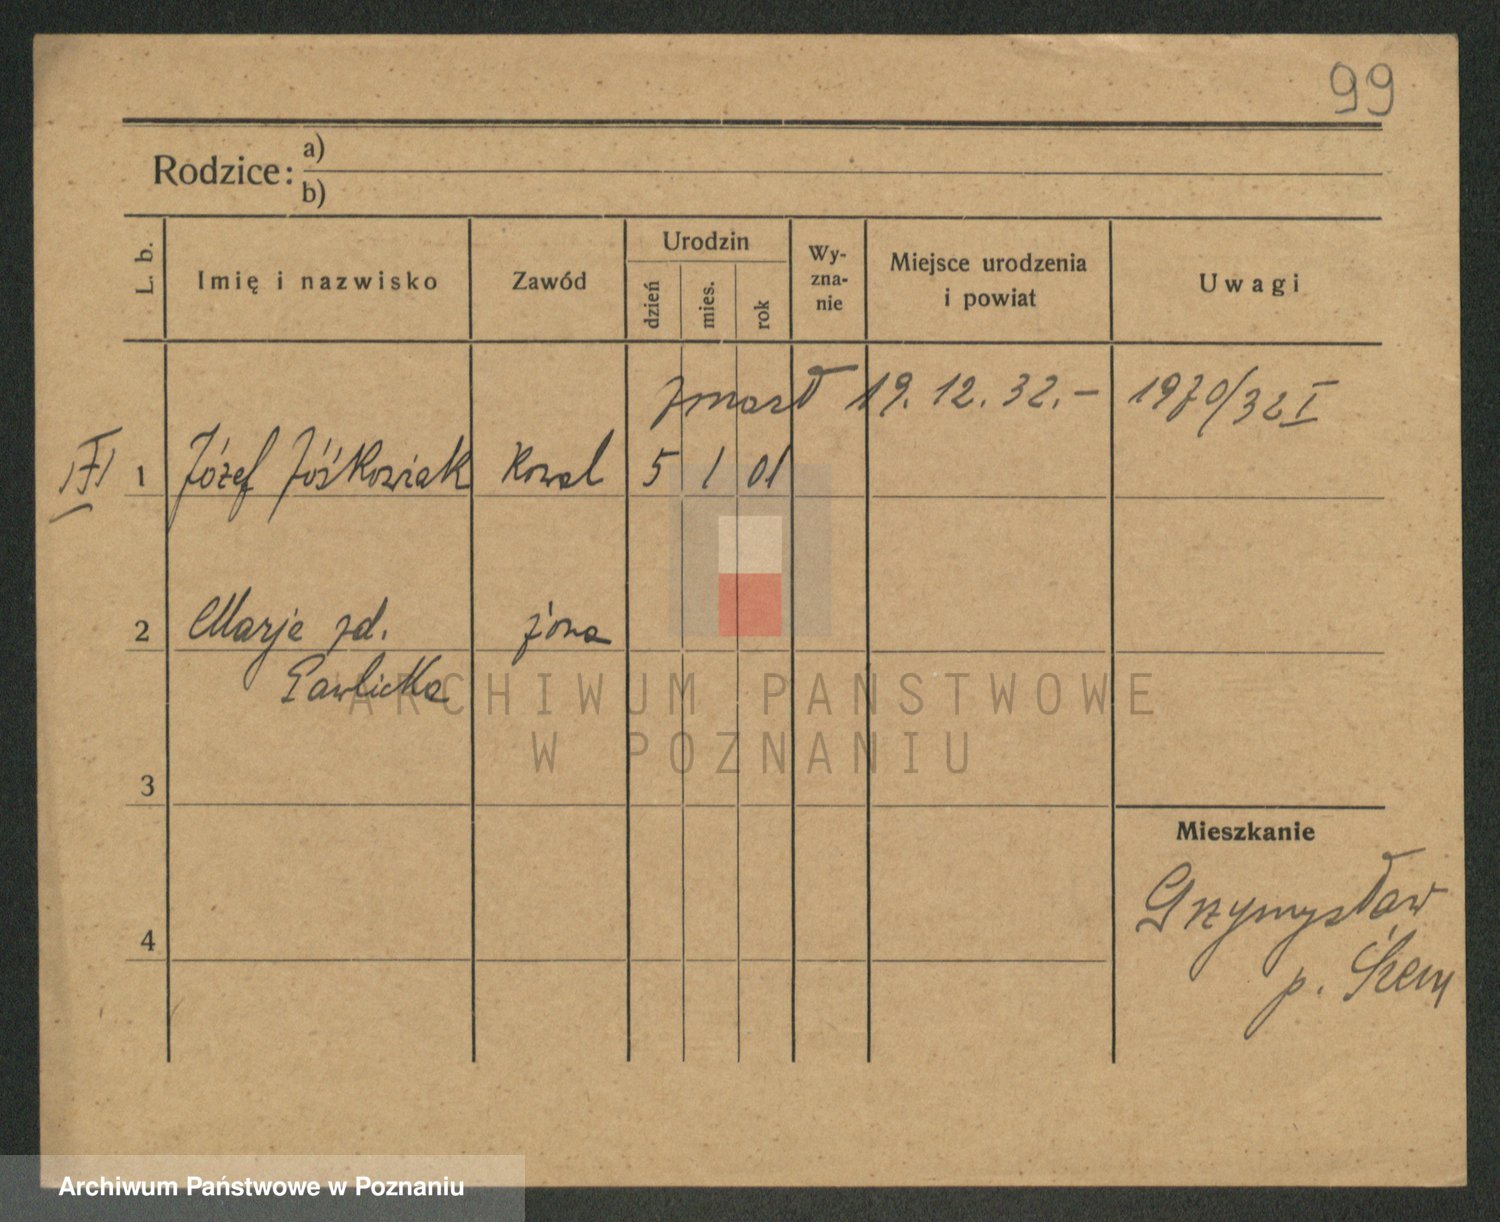 99
Rodzice: a)
b)
L. b. Imię i nazwisko Zawód Urodzin dzień mies. rok Wy-zna-nie Miejsce urodzenia i powiat Uwagi
zmarł 19. 12. 32.- 1970/32 I
1 Józef Jóśkowiak kowal 5 1 01
2 Marje zd. żona
Pawlicka
ARCHIWUM PAŃSTWOWE
W POZNANIU
3
Mieszkanie
Grzymysław
4
p. Śrem
Archiwum Państwowe w Poznaniu